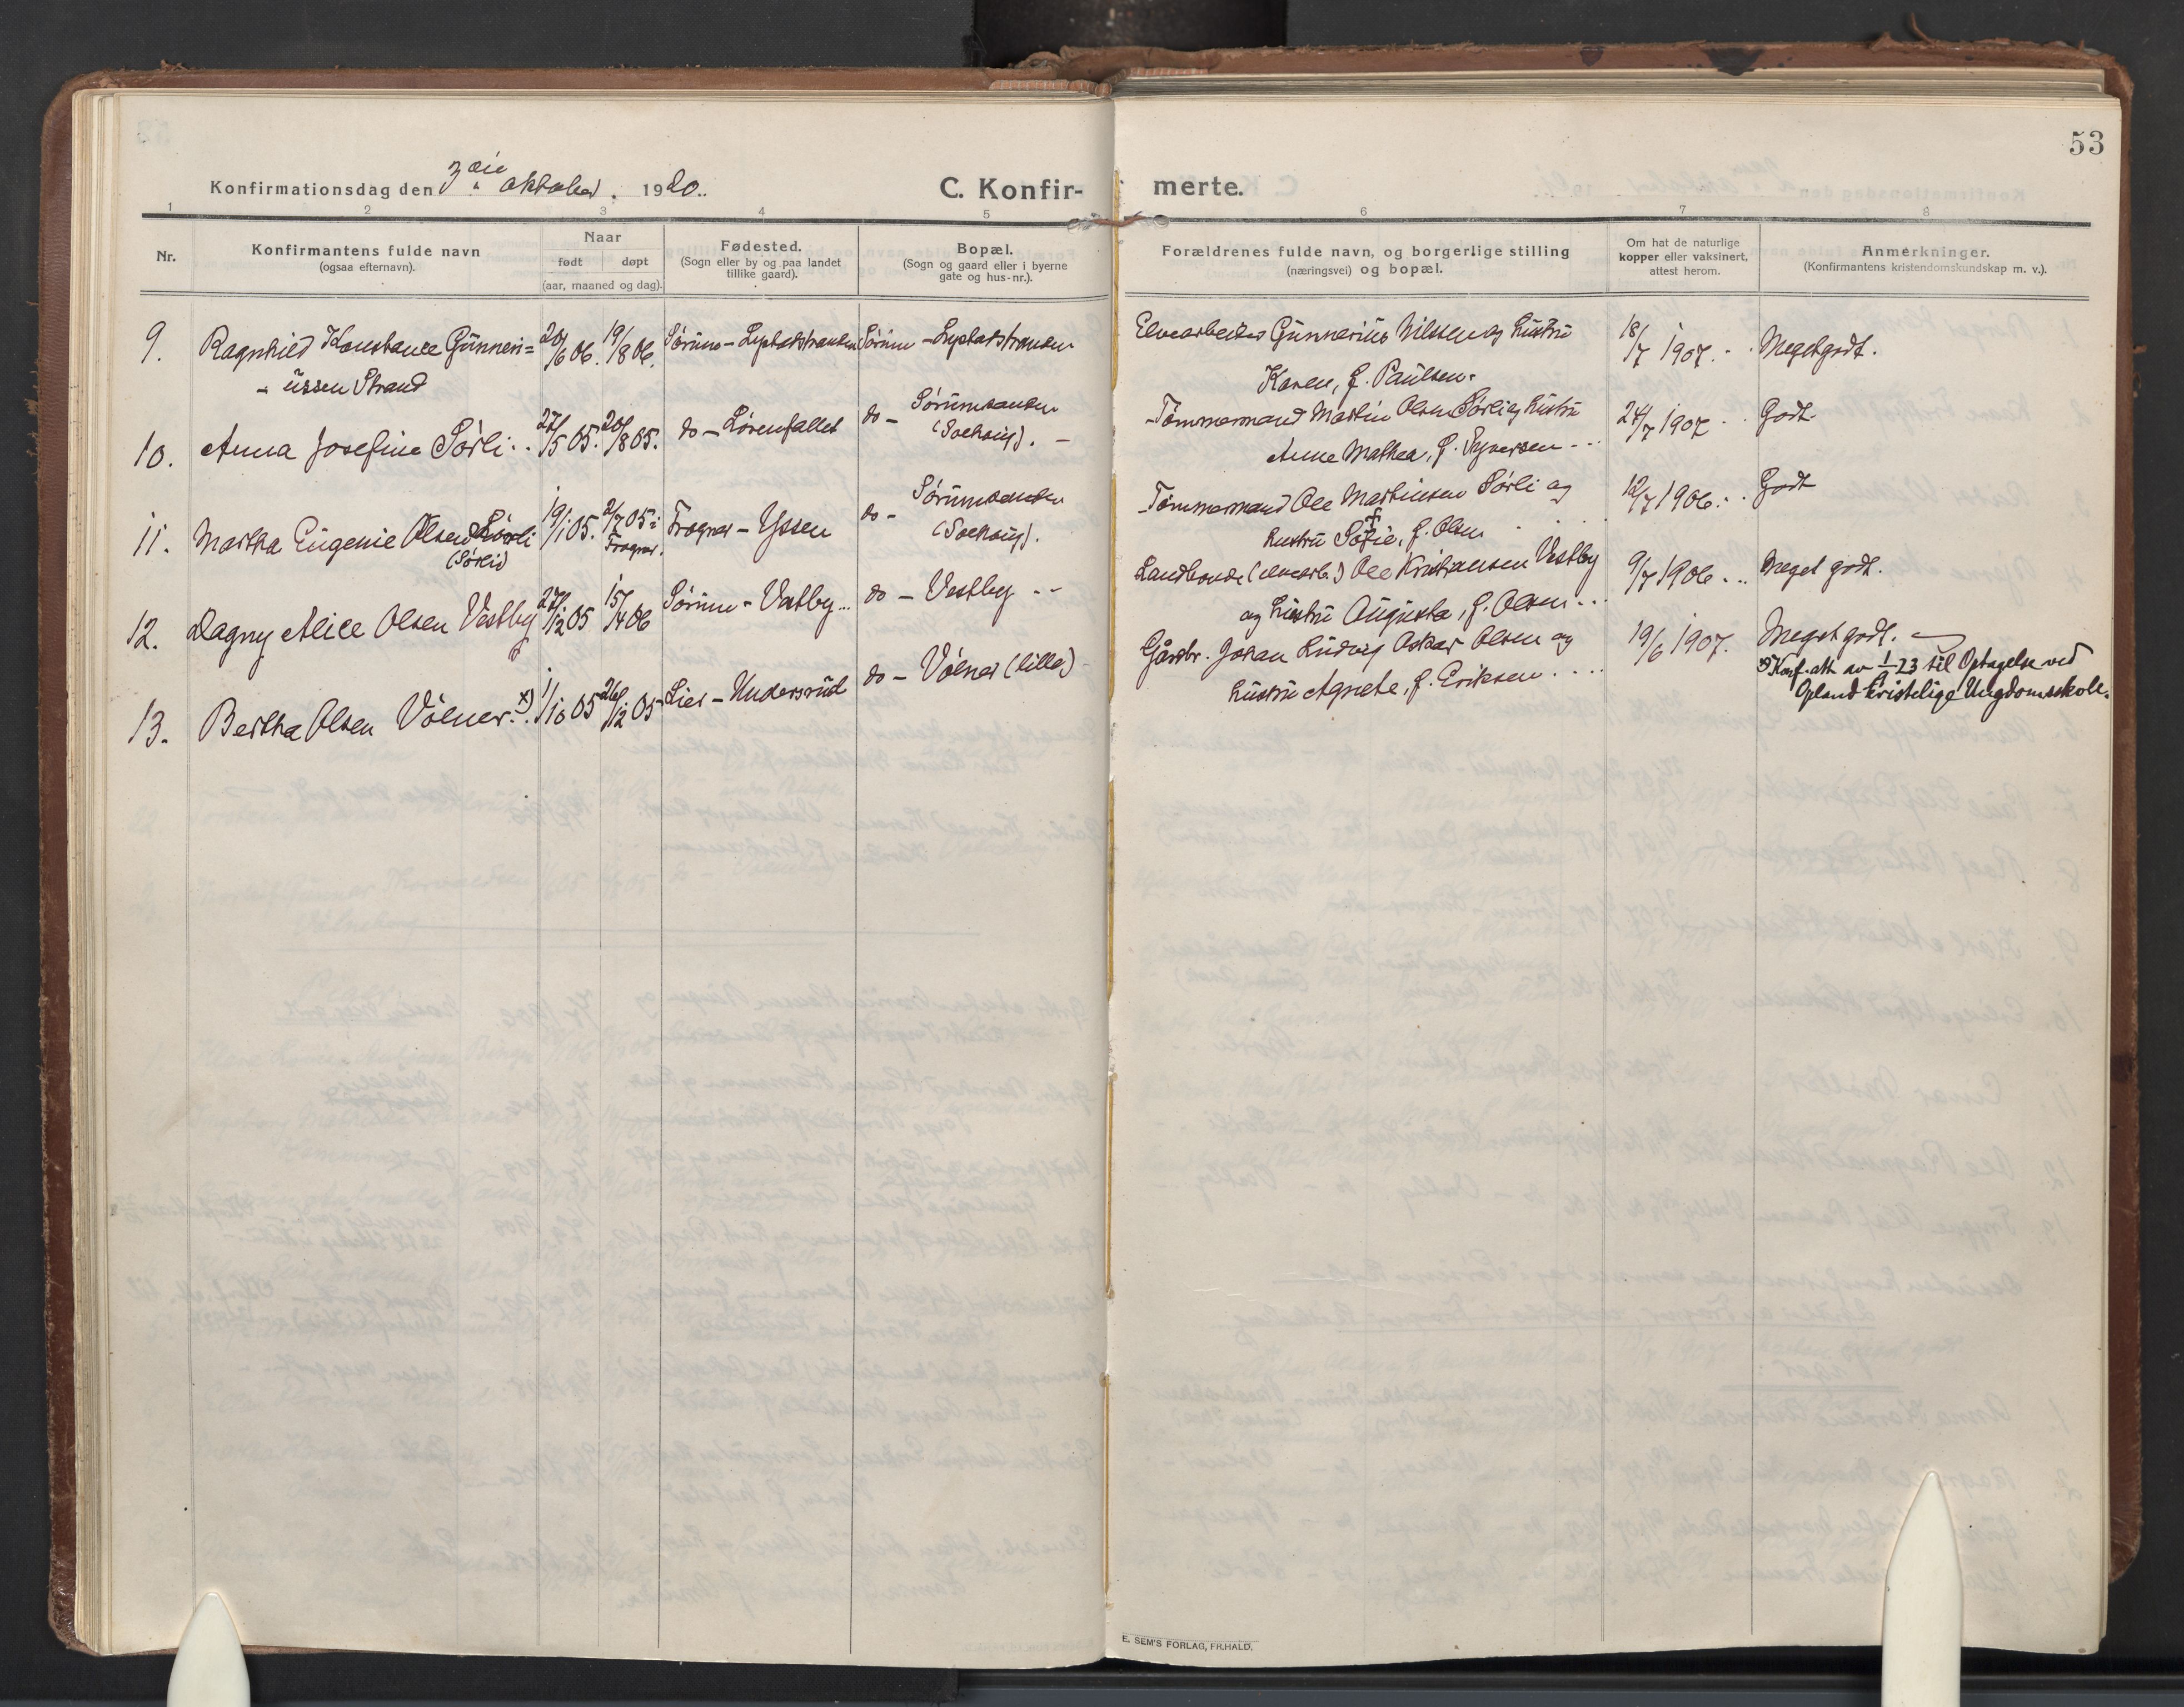 53
Konfirmationsdag den 3die oktober. 1920.
C. Konfir-
merte.
1 2 3 4 5 6 7 8
Nr.
Konfirmantens fulde navn
(ogsaa efternavn).
Naar
født døpt
(aar, maaned og dag).
Fødested.
(Sogn eller by og paa landet
tillike gaard).
Bopæl.
(Sogn og gaard eller i byerne
gate og hus-nr.).
Forældrenes fulde navn, og borgerlige stilling
(næringsvei) og bopæl.
Om hat de naturlige
kopper eller vaksinert,
attest herom.
Anmerkninger.
(Konfirmantens kristendomskundskap m. v.).
9. Ragnhild Konstance Gunneri= 20/6 06. 19/8 06. Sørum - Sørum - Elvearbeider Gunnerius Nilssen og hustru 18/7 1907. Meget godt.
- ussen Strand Karen, f. Paulsen.
10. Anna Josefine Sørli. 27/5 05. 20/8 05. do - Lørenfallet do - Sørumsanden Tømmermand Martin Olsen Sørli og hustru 24/7 1907 Godt
Anne Mathea, f. Syversen
11. Martha Eugenie Olsen Sørli 19/1 05. 2/7 05 i Frogner - Yssen do - Sørumsanden Tømmermand Ole Martinsen Sørli og 12/7 1906. Godt
(Sørli) Frogner. hustru Sofie, f. Olsen
12. Dagny Alice Olsen Vestby 27/12 05 15/4 06 Sørum - Vestby do - Vestby Landbonde (elvearb.) Ole Kristiansen Vestby 9/7 1906 Meget godt.
og hustru Augusta, f. Olsen
13. Bertha Olsen Vølner x) 1/10 05 26/12 05 Lier - Undersrud do - Vølner (lille) Gårdbr. Johan Ludvig Oskar Olsen og 19/6 1907. Meget godt.
hustru Agnete, f. Eriksen
x) Konf. att. av 23 til Optagelse ved
Opland kristelige Ungdomsskole.
E. SEM'S FORLAG, FR.HALD.